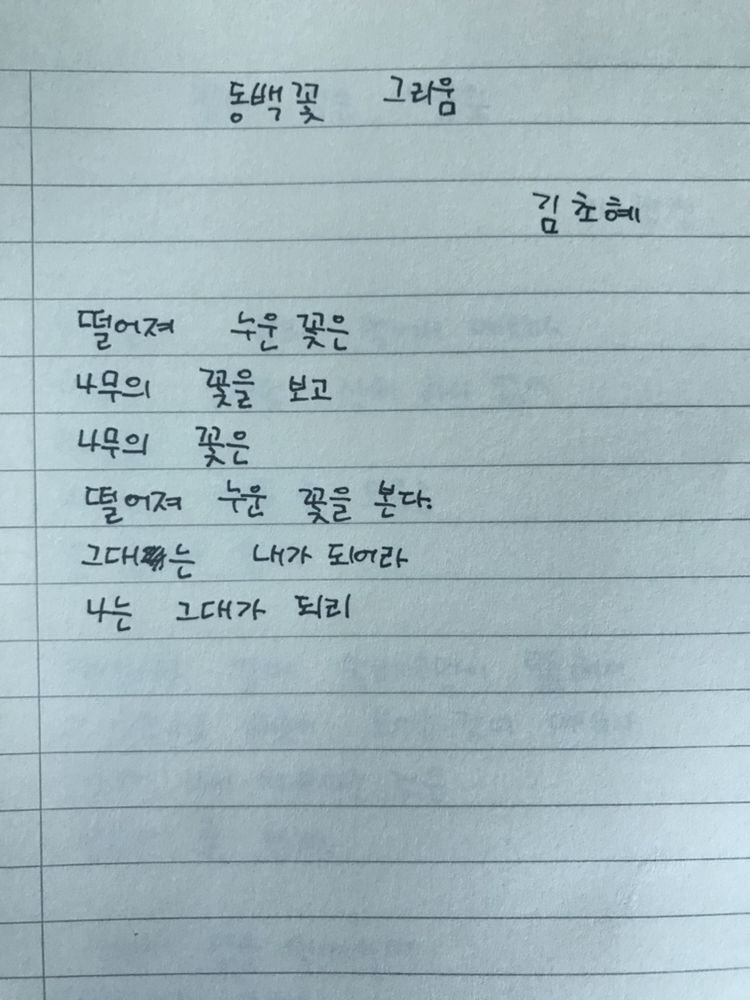 동백꽃 그리움
김초혜
떨어져 누운 꽃은
나무의 꽃을 보고
나무의 꽃은
떨어져 누운 꽃을 본다.
그대는 내가 되어라
나는 그대가 되리